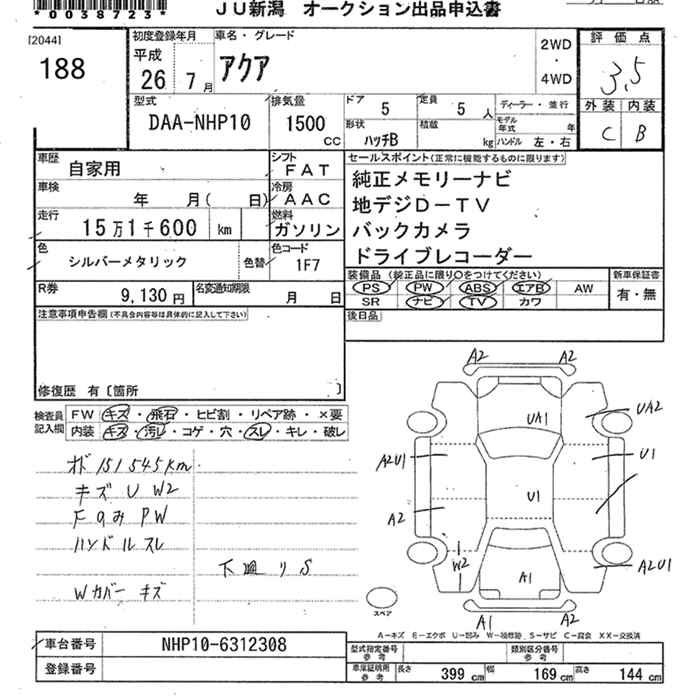 *0038723*
JU新潟 オークション出品申込書
[2044]
188
初度登録年月
平成
26年7月
車名・グレード
アクア
2WD
・
4WD
評価点
3.5
外装 内装
C B
型式
DAA-NHP10
排気量
1500
CC
ドア
5
定員
5人
形状
ハッチB
積載
kg
ディーラー・並行
モデル年式 年
ハンドル 左・右
車歴 自家用
シフト FAT
車検 年 月( 日)
冷房 AAC
走行 15万1千600 km
燃料 ガソリン
色 シルバーメタリック 色替
色コード 1F7
R券 9,130円
名変通知期限 月 日
セールスポイント(正常に機能するものに限ります)
純正メモリーナビ
地デジD-TV
バックカメラ
ドライブレコーダー
装備品(純正品に限り○をつけてください)
PS PW ABS エアB AW
SR ナビ TV カワ
新車保証書
有・無
後日品
注意事項申告欄(不具合内容等は具体的に記入して下さい)
修復歴 有〔箇所 〕
検査員記入欄
FW キズ・飛石・ヒビ割・リペア跡・×要
内装 キズ・汚レ・コゲ・穴・スレ・キレ・破レ
オド 151545km
キズ U W2
Fのみ PW
ハンドル スレ
下廻りS
Wカバー キズ
A2 A2
UA1
UA2
A2U1
U1
U1
A2
W2
A1
A2U1
A1 A2
スペア
A-キズ E-エクボ U-凹み W-補修跡 S-サビ C-腐食 XX-交換済
車台番号 NHP10-6312308
登録番号
型式指定番号 参考
類別区分番号 参考
車庫証明所 参考
長さ 399 cm 幅 169 cm 高さ 144 cm